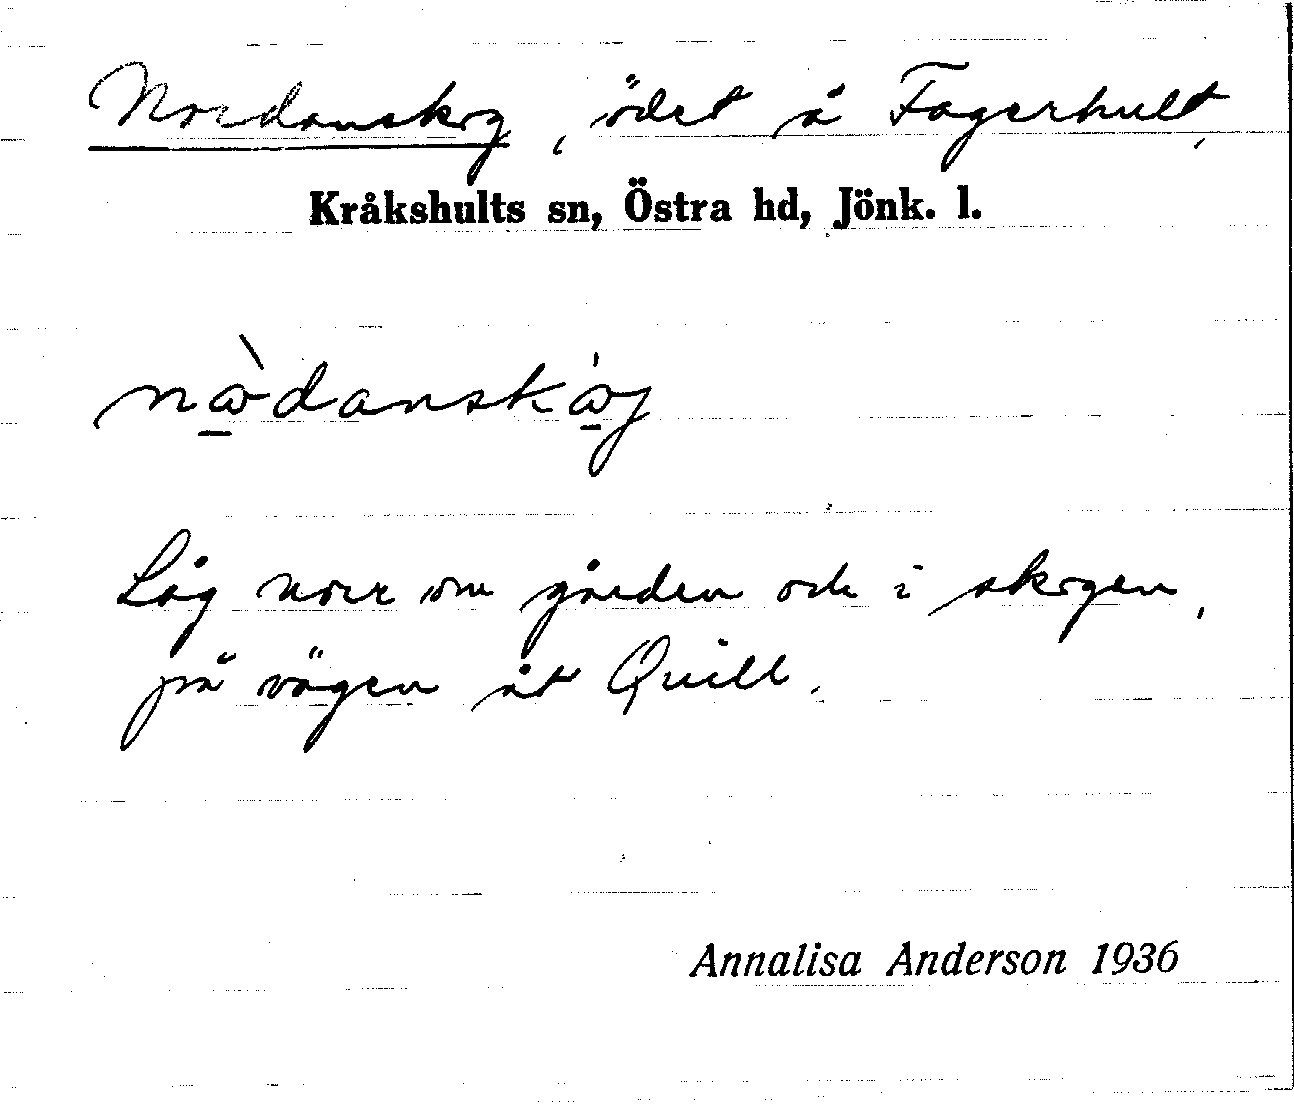 Nordanskog, ödet å Fagerhult,
Kråkshults sn, Östra hd, Jönk. l.
nɷ̀danskɷ́g
Låg norr om gården och i skogen,
på vägen åt Quill.
Annalisa Anderson 1936